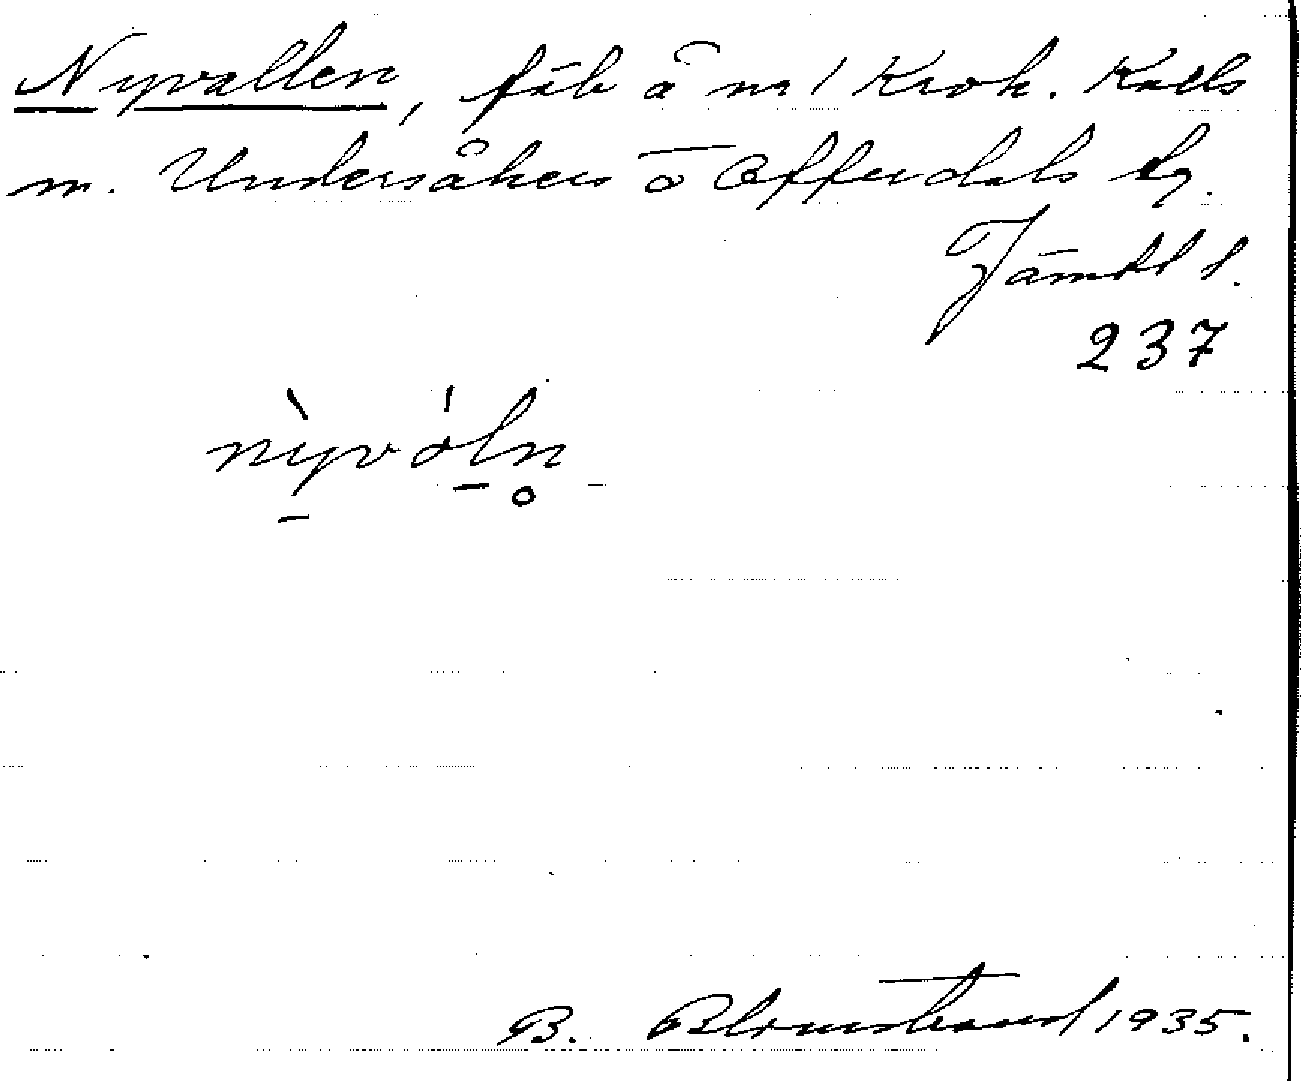 Nyvallen, fäb å nr 1 Krok. Kalls
m. Undersåkers o Offerdals tg.
Jämtl l.
237
nỳvóln̥
B. Blomstrand 1935.